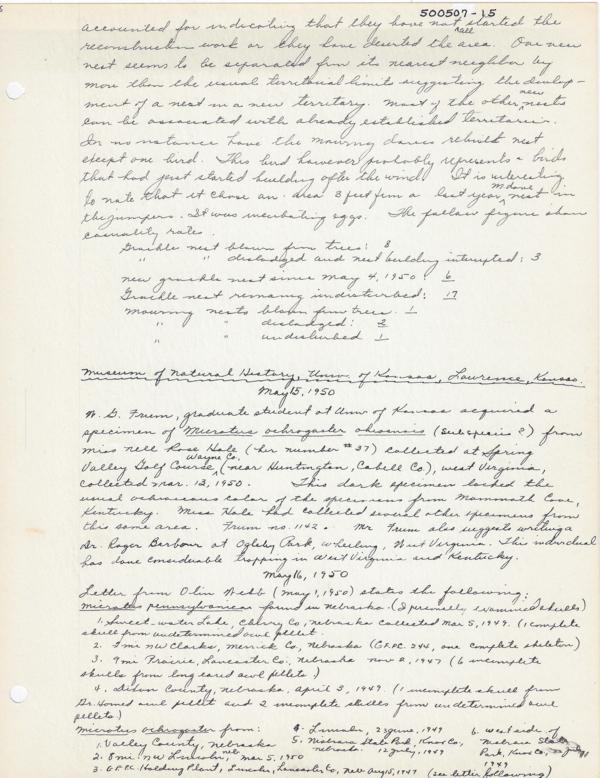 500507-15
accounted for indicating that they have not all started the
reconstruction work or they have deserted the area. One new
nest seems to be separated from its nearest neighbor by
more than the usual territorial limits suggesting the develop-
ment of a nest in a new territory. Most of the other new nests
can be associated with already established territories.
In no instance have the mourning doves rebuilt nest
except one bird. This bird however probably represents a birds
that had just started building after the wind. It is interesting
to note that it chose an area 3 feet from a last year, M. dove nest in
the junipers. It was incubating eggs. The follow figure show
casuality rates.
Grackle nest blown from trees: 8
" " dislodged and nest building interrupted: 3
new grackle nest since May 4, 1950: 6
Grackle nest remaing undisturbed: 17
Mourning nests blown from trees. 1
" " dislodged: 2
" " undisturbed 1
Museum of Natural History, Univ. of Kansas, Lawrence, Kansas.
May 15, 1950
W. D. Frum, graduate student at Univ of Kansas acquired a
specimen of Microtus ochrogaster ohionensis (subspecies ?) from
Miss Nell Rose Hale (her number #37) collected at Spring
Valley Golf Course, Wayne Co. (near Huntington, Cabell Co), West Virginia,
collected Mar. 13, 1950. This dark specimen lacked the
usual ochraceous color of the specimens from Mammoth Cave,
Kentucky. Miss Hale had collected several other specimens from
this same area. Frum no. 1142. Mr Frum also suggests writing a
Dr. Roger Barbour at Oglebay Park, Wheeling, West Virginia. This individual
has done considerable trapping in West Virginia and Kentucky.
May 16, 1950
Letter from Olin Webb (May 1, 1950) states the following:
Microtus pennsylvanicus found in Nebraska. (I personally examined skulls)
1. Sweet-water Lake, Cherry Co, Nebraska collected Mar 5, 1949. (1 complete
skull from undetermined owl pellet.
2. 2 mi NW Clarks, Merrick Co, Nebraska (G.F.P.C. 244, one complete skeleton)
3. 9 mi Prairie, Lancaster Co., Nebraska Nov 2, 1947 (6 incomplete
skulls from long eared owl pellets)
4. County, Nebraska, April 3, 1949. (1 incomplete skull from
Gr. Horned owl pellet and 2 incomplete skulls from undetermined owl
pellets.)
Microtus ochrogaster from:
1. Valley County, Nebraska
2. 8 mi. NW Lincoln, Neb Mar 5, 1950
3. G.F.P.C. Holding Plant, Lincoln, Lancaster Co, Neb Aug 15, 1947 (see letter following)
4. Lincoln, 23 June, 1949
5. Niobrara State Park, Knox Co, Nebraska. 12 July, 1949
6. West side of
Niobrara State
Park, Knox Co,
1949